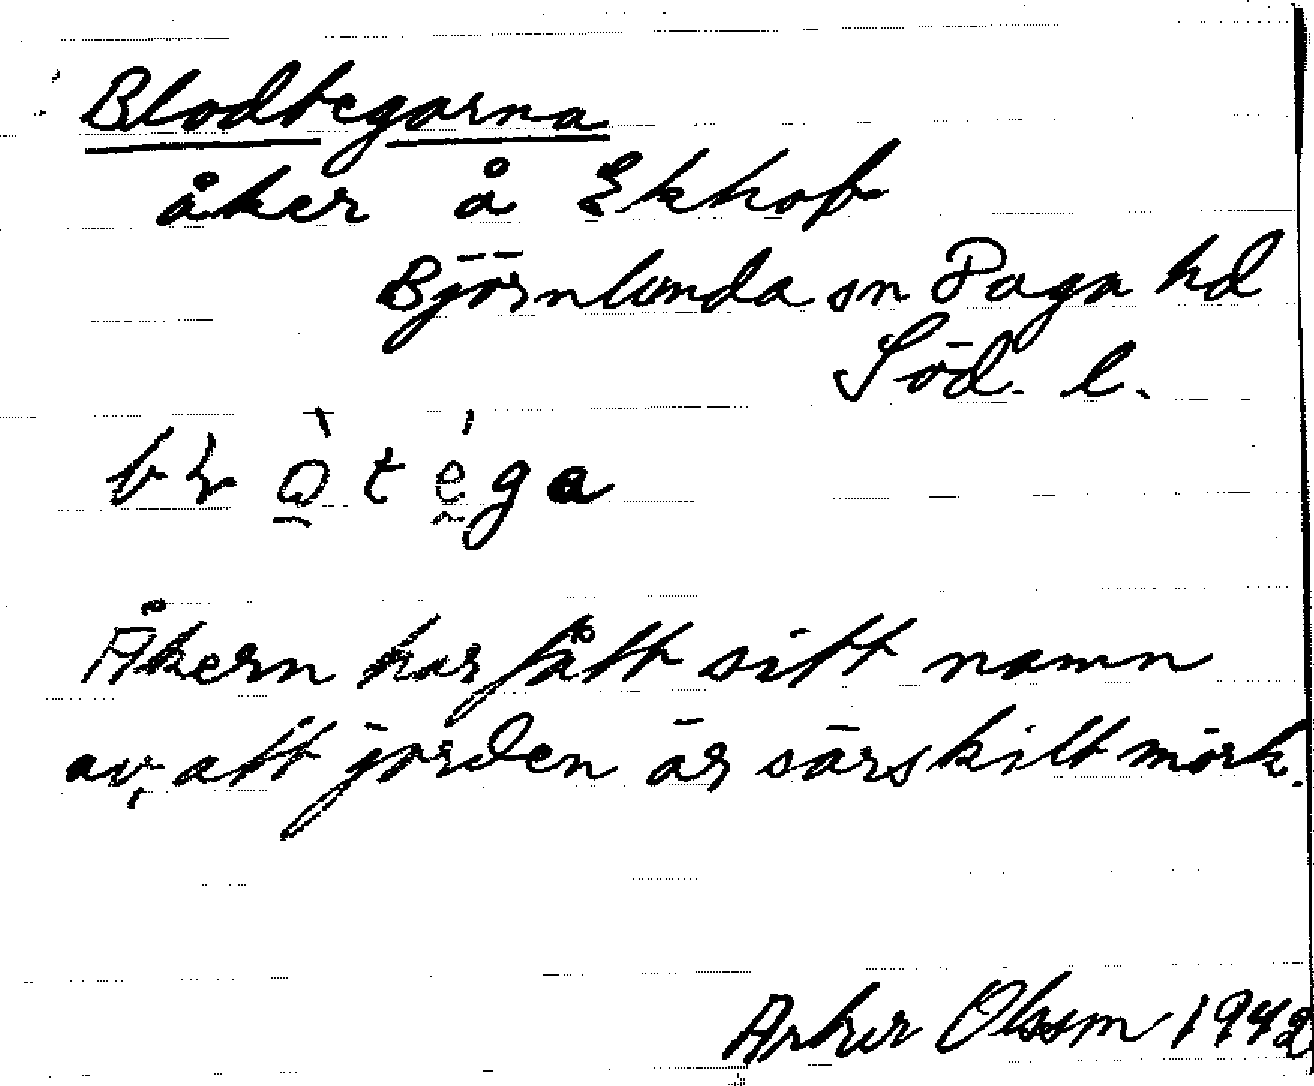 Blodtegarna
åker å Ekhof
Björnlunda sn Daga hd
Söd. l.
Åkern har fått sitt namn
av, att jorden är särskilt mörk.
Artur Olsson 1942